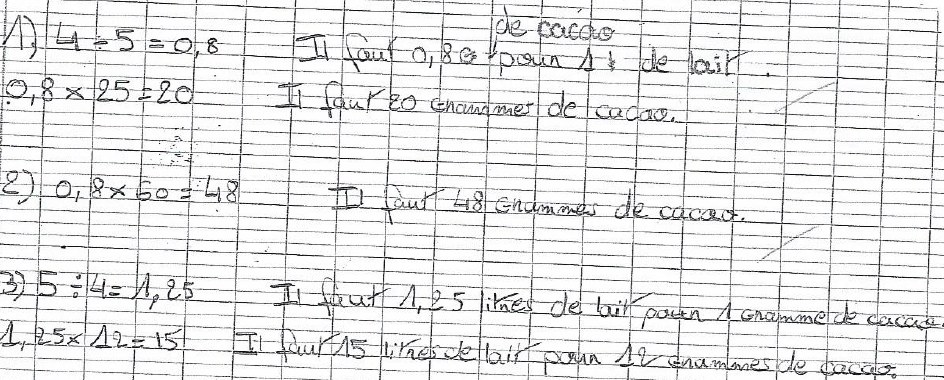 de cacao
1) 4 ÷ 5 = 0,8 Il faut 0,8 G pour 1 l de lait.
0,8 × 25 = 20 Il faut 20 grammes de cacao.
2) 0,8 × 60 = 48 Il faut 48 grammes de cacao.
3) 5 ÷ 4 = 1,25 Il faut 1,25 litres de lait pour 1 gramme de cacao.
1,25 × 12 = 15 Il faut 15 litres de lait pour 12 grammes de cacao.